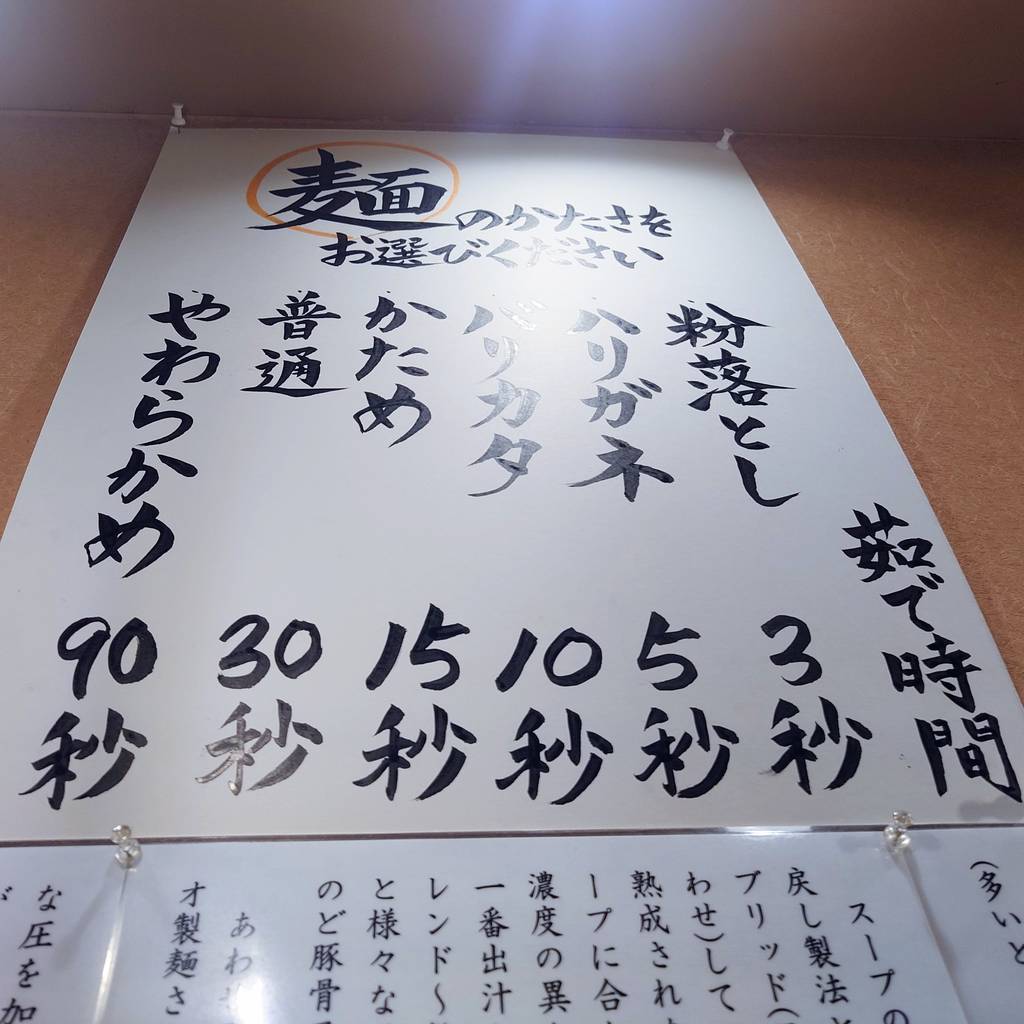 麺のかたさを
お選びください
茹で時間
粉落とし 3秒
ハリガネ 5秒
バリカタ 10秒
かため 15秒
普通 30秒
やわらかめ 90秒
(多いと
スープの
戻し製法と
ブリッド(
わせ)して
熟成され
ープに合
濃度の異
一番出汁
レンド〜
と様々な
のど豚骨
あわ
オ製麺さ
な圧を加
が